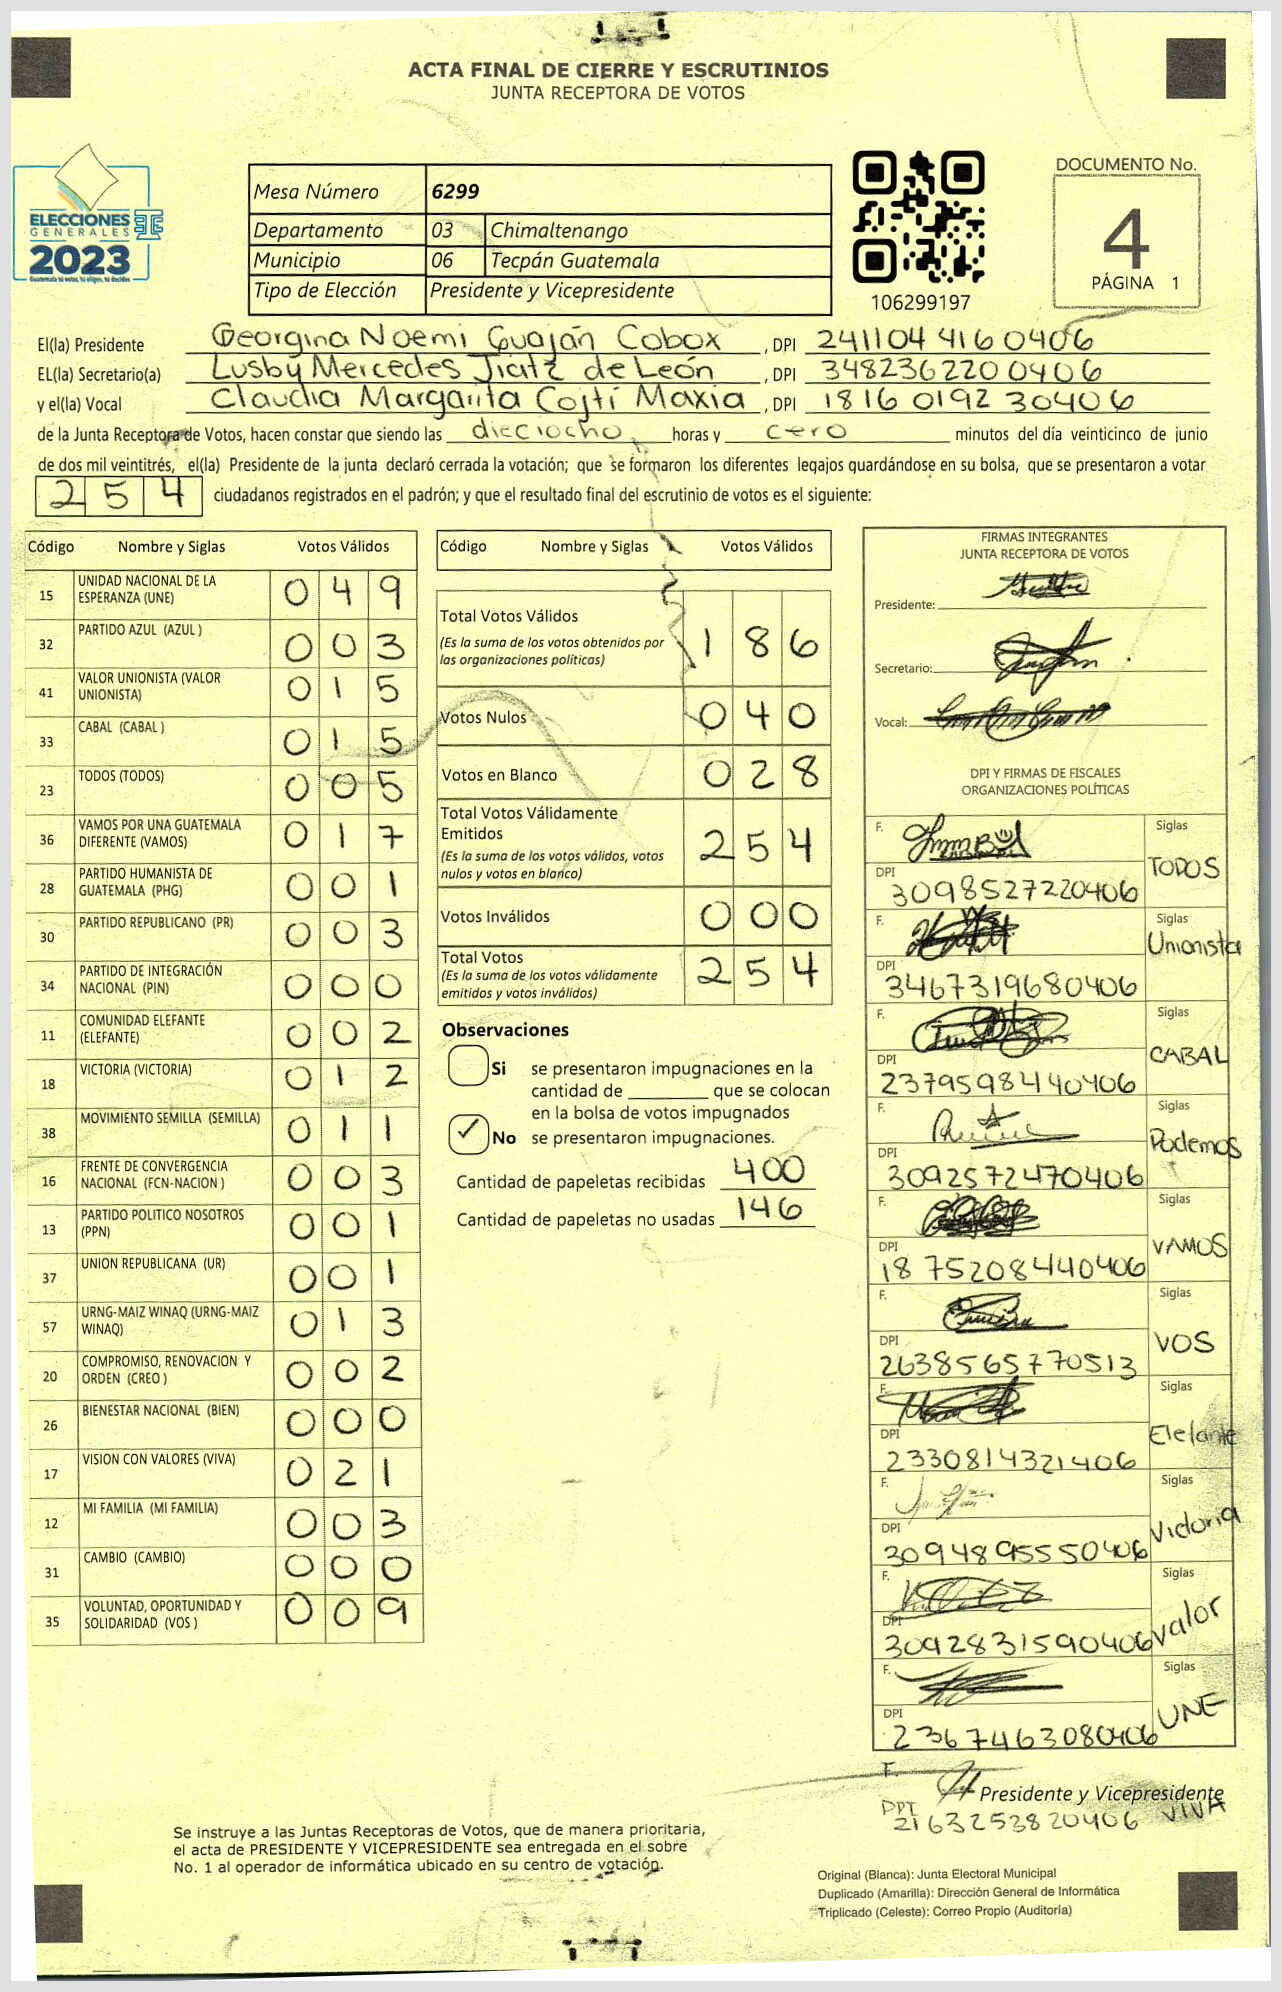 ACTA FINAL DE CIERRE Y ESCRUTINIOS
JUNTA RECEPTORA DE VOTOS
ELECCIONES
GENERALES
2023
Mesa Número 6299
Departamento 03 Chimaltenango
Municipio 06 Tecpán Guatemala
Tipo de Elección Presidente y Vicepresidente
106299197
DOCUMENTO No.
4
PÁGINA 1
El(la) Presidente Georgina Noemi Guaján Cobox , DPI 241104 4160406
EL(la) Secretario(a) Lusby Mercedes Jiatz de León , DPI 348236220 0406
y el(la) Vocal Claudia Margarita Cojtí Maxia , DPI 1816 0192 30406
de la Junta Receptora de Votos, hacen constar que siendo las dieciocho horas y cero minutos del día veinticinco de junio
de dos mil veintitrés, el(la) Presidente de la junta declaró cerrada la votación; que se formaron los diferentes legajos guardándose en su bolsa, que se presentaron a votar
254 ciudadanos registrados en el padrón; y que el resultado final del escrutinio de votos es el siguiente:
Código Nombre y Siglas Votos Válidos
15 UNIDAD NACIONAL DE LA ESPERANZA (UNE) 049
32 PARTIDO AZUL (AZUL ) 003
41 VALOR UNIONISTA (VALOR UNIONISTA) 015
33 CABAL (CABAL ) 015
23 TODOS (TODOS) 005
36 VAMOS POR UNA GUATEMALA DIFERENTE (VAMOS) 017
28 PARTIDO HUMANISTA DE GUATEMALA (PHG) 001
30 PARTIDO REPUBLICANO (PR) 003
34 PARTIDO DE INTEGRACIÓN NACIONAL (PIN) 000
11 COMUNIDAD ELEFANTE (ELEFANTE) 002
18 VICTORIA (VICTORIA) 012
38 MOVIMIENTO SEMILLA (SEMILLA) 011
16 FRENTE DE CONVERGENCIA NACIONAL (FCN-NACION ) 003
13 PARTIDO POLITICO NOSOTROS (PPN) 001
37 UNION REPUBLICANA (UR) 001
57 URNG-MAIZ WINAQ (URNG-MAIZ WINAQ) 013
20 COMPROMISO, RENOVACION Y ORDEN (CREO ) 002
26 BIENESTAR NACIONAL (BIEN) 000
17 VISION CON VALORES (VIVA) 021
12 MI FAMILIA (MI FAMILIA) 003
31 CAMBIO (CAMBIO) 000
35 VOLUNTAD, OPORTUNIDAD Y SOLIDARIDAD (VOS ) 009
Código Nombre y Siglas Votos Válidos
Total Votos Válidos 186
(Es la suma de los votos obtenidos por
las organizaciones políticas)
Votos Nulos 040
Votos en Blanco 028
Total Votos Válidamente
Emitidos 254
(Es la suma de los votos válidos, votos
nulos y votos en blanco)
Votos Inválidos 000
Total Votos 254
(Es la suma de los votos válidamente
emitidos y votos inválidos)
Observaciones
Si se presentaron impugnaciones en la
cantidad de ________ que se colocan
en la bolsa de votos impugnados
✓ No se presentaron impugnaciones.
Cantidad de papeletas recibidas 400
Cantidad de papeletas no usadas 146
FIRMAS INTEGRANTES
JUNTA RECEPTORA DE VOTOS
Presidente:
Secretario:
Vocal:
DPI Y FIRMAS DE FISCALES
ORGANIZACIONES POLÍTICAS
F. Siglas
DPI 3098527220406 TODOS
F. Siglas
DPI 3467319680406 Unionista
F. Siglas
DPI 2379598440406 CABAL
F. Siglas
DPI 3092572470406 Podemos
F. Siglas
DPI 18 75208440406 VAMOS
F. Siglas
DPI 2638565770513 VOS
F. Siglas
DPI 2330814321406 Elefante
F. Siglas
DPI 3094895550406 Victoria
F. Siglas
DPI 3092831590406 valor
F. Siglas
DPI 2367463080406 UNE
F.
Presidente y Vicepresidente
DPI 2163253820406 VIVA
Se instruye a las Juntas Receptoras de Votos, que de manera prioritaria,
el acta de PRESIDENTE Y VICEPRESIDENTE sea entregada en el sobre
No. 1 al operador de informática ubicado en su centro de votación.
Original (Blanca): Junta Electoral Municipal
Duplicado (Amarilla): Dirección General de Informática
Triplicado (Celeste): Correo Propio (Auditoría)